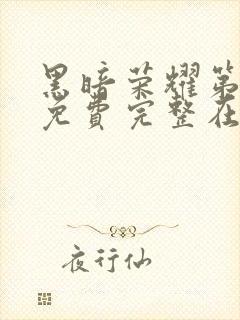 黑暗荣耀第
免费完整在
夜行仙